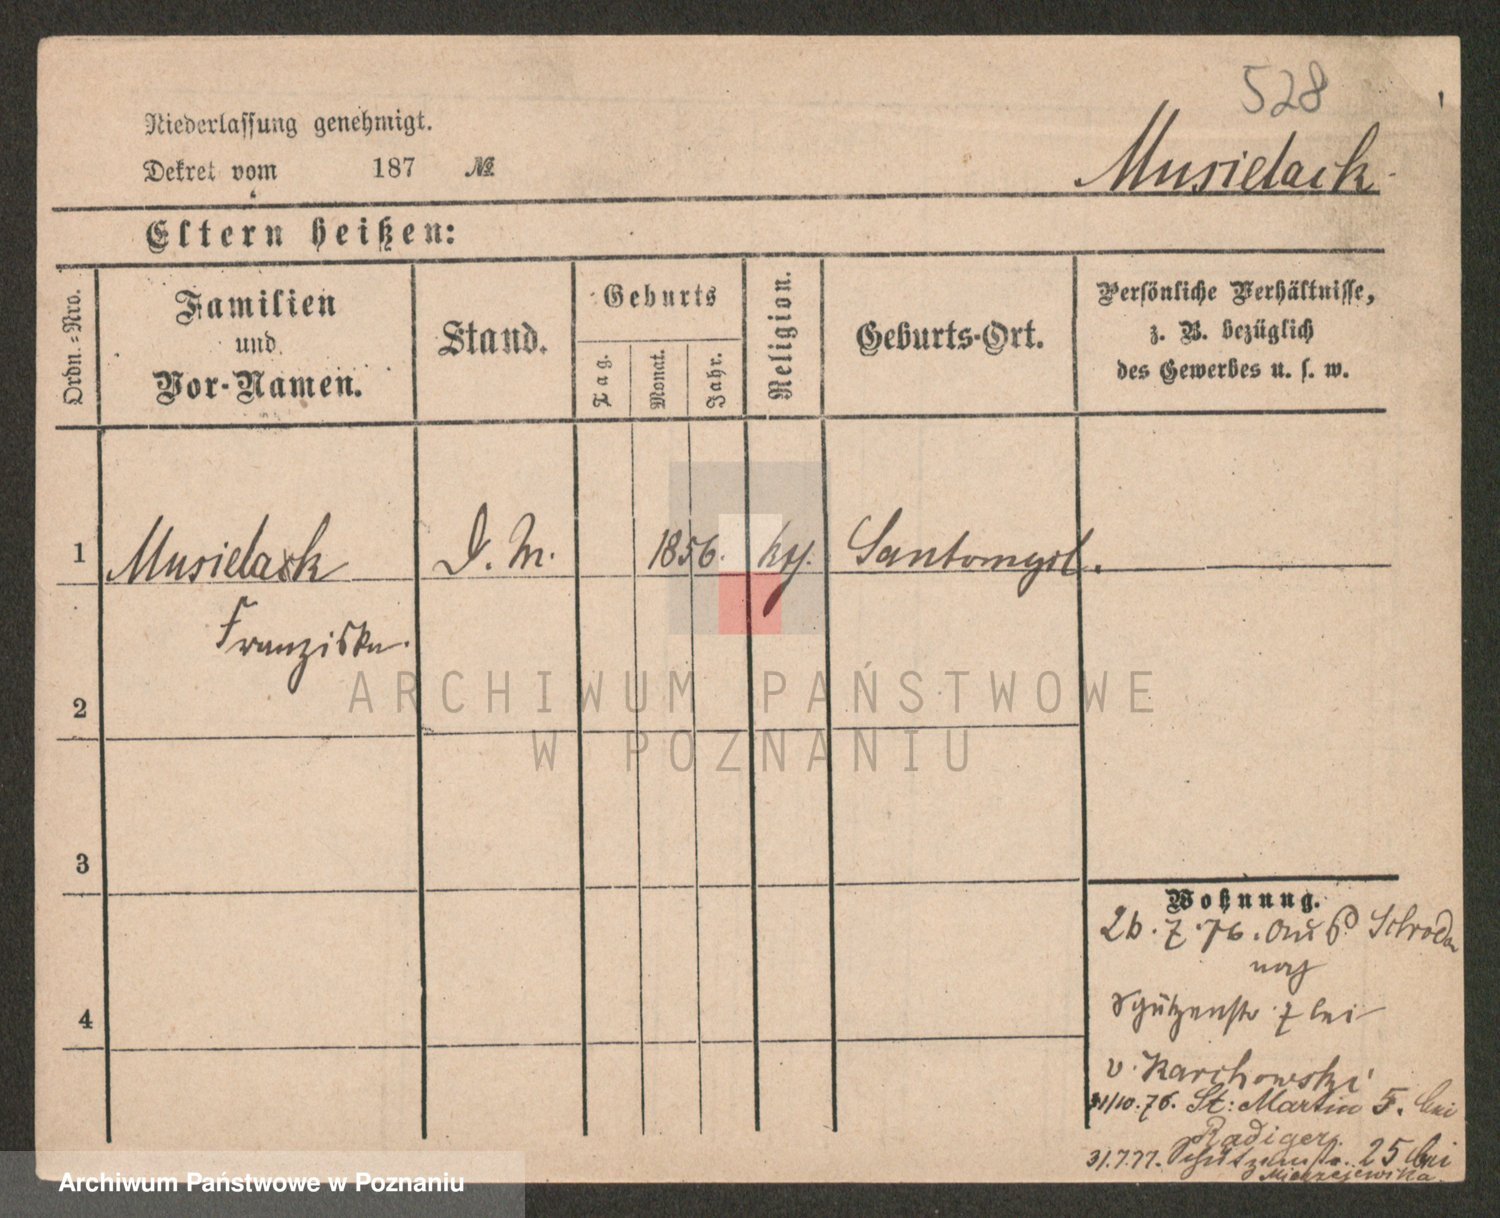 528
Niederlassung genehmigt.
Dekret vom 187 №
Musielack
Eltern heißen:
Ordn.-Nro.
Familien
und
Vor-Namen.
Stand.
Geburts
Tag.
Monat.
Jahr.
Religion.
Geburts-Ort.
Persönliche Verhältnisse,
z. B. bezüglich
des Gewerbes u. s. w.
1 Musielack D. M. 1856. kth. Santomysl.
Franziska.
2
3
4
Wohnung.
26.7.76. aus Schroda
nach
Schützenstr 7 bei
v. Karchowski
31/10.76. St: Martin 5. bei
Radiger.
31.7.77. Schützenstr. 25 bei
ARCHIWUM PAŃSTWOWE
W POZNANIU
Archiwum Państwowe w Poznaniu